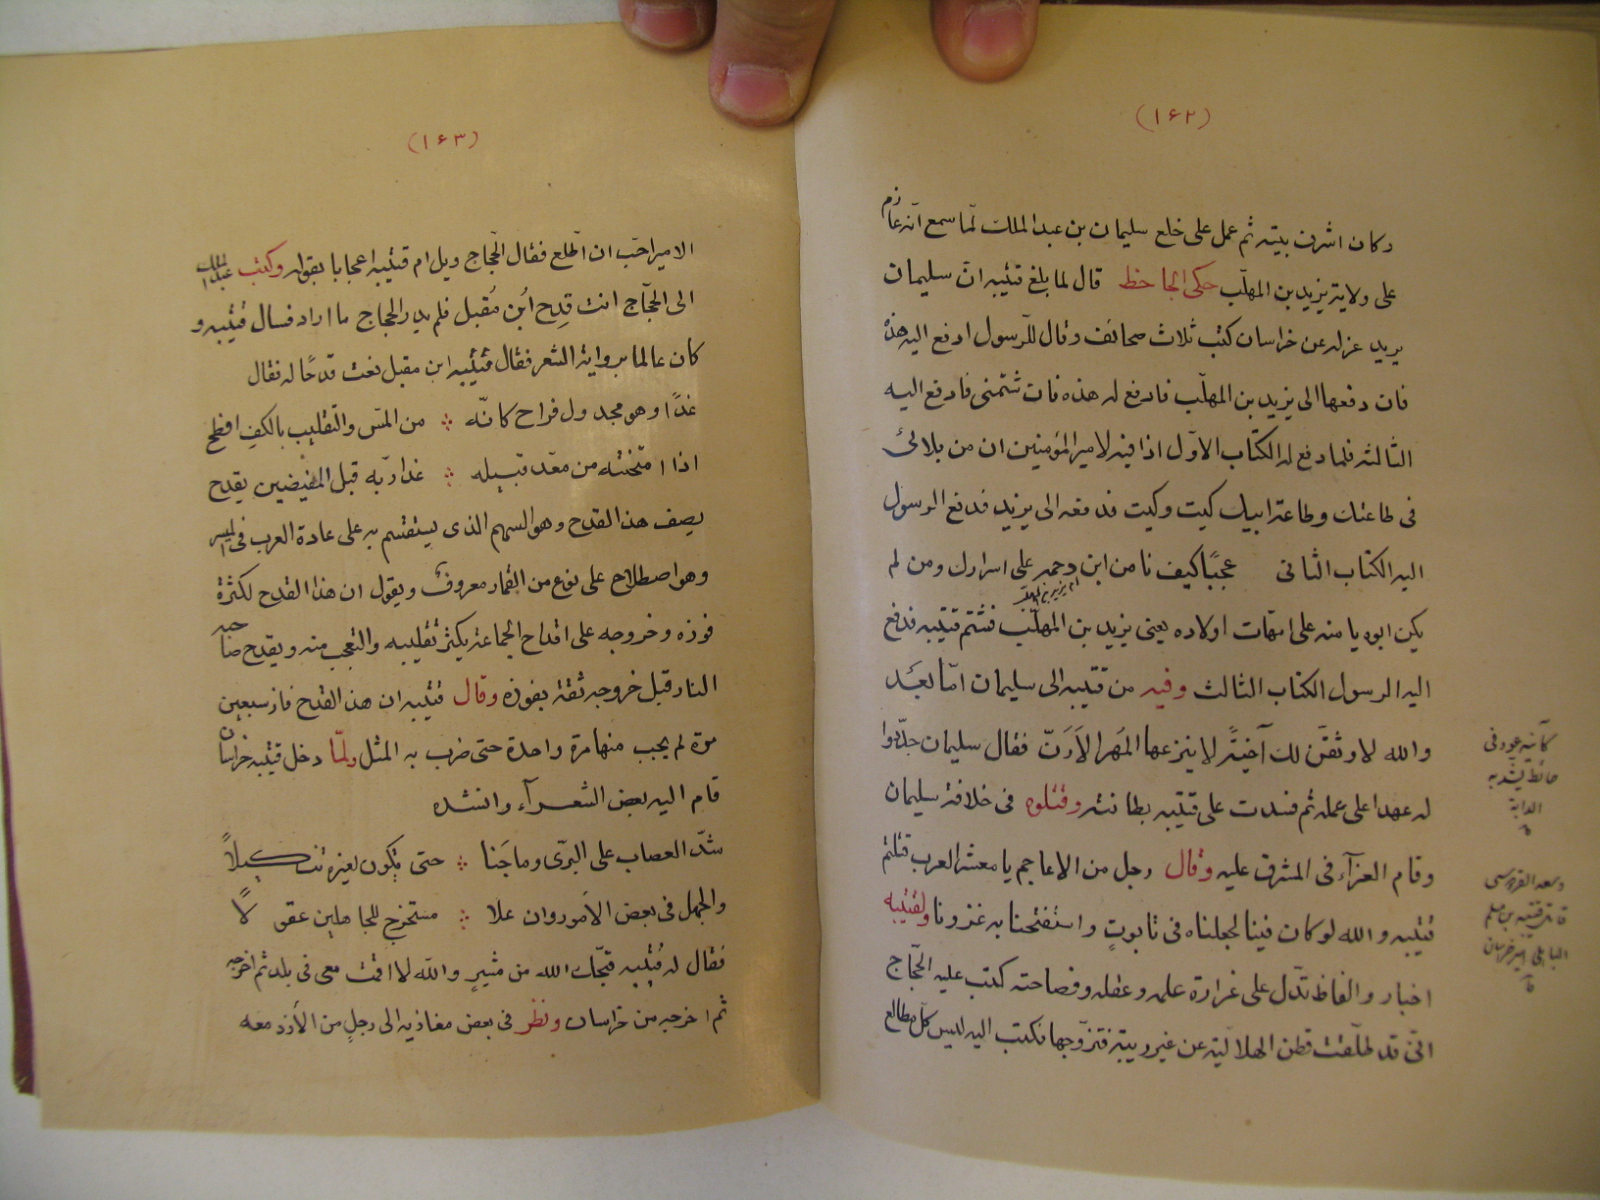 (١۶٢)
وكان اشرف بيته ثم عمل على خلع سليمان بن عبد الملك لما سمع انه عازم
على ولاية يزيد بن المهلب حكى الجاحظ قال لما بلغ قتيبه ان سليمان
يريد عزله عن خراسان كتب ثلاث صحائف وقال للرسول ادفع اليه هذه
فان دفعها الى يزيد بن المهلب فادفع له هذه فان شتمنى فادفع اليه
الثالثه فلما دفع له الكتاب الاول اذا فيه لامير المؤمنين ان من بلائى
فى طاعتك وطاعة ابيك كيت وكيت فدفعه الى يزيد فدفع الرسول
اليه الكتاب الثانى عجبًا كيف نامن ابن دحمه على اسرارك ومن لم
يكن ابوه يامنه على امهات اولاده يعنى يزيد بن المهلب فشتم قتيبه فدفع
اليه الرسول الكتاب الثالث وفيه من قتيبه الى سليمان اما بعد
والله لاوثقن لك آخيةً لا ينزعها المهر الارن فقال سليمان جددوا
له عهدا على عمله ثم فسدت على قتيبه بطانته وقتلوه فى خلافة سليمان
وقام العزآء فى المشرق عليه وقال رجل من الاعاجم يا معشر العرب قتلتم
قتيبه والله لو كان فينا لجعلناه فى تابوتٍ واستفتحنا به غزونا ولقتيبه
اخبار والفاظ تدل على غزارة علمه وعقله وفصاحته كتب عليه الحجاج
انى قد طلقت قطن الهلالية عن غير ريبة فتزوجها فكتب اليه ليس كل مطالع
كآنيه عود فى
حائط يشد به
الدابة
قتيبه بن مسلم
الباهلى امير خراسان
(١۶٣)
الامير احب ان اطلع فقال الحجاج ويل ام قتيبه اعجابا بقوله وكتب عبد الملك
الى الحجاج انت قدح ابن مقبل فلم يدر الحجاج ما اراد فسال قتيبه و
كان عالما برواية الشعر فقال قتيبه ابن مقبل نعت قدحًا له فقال
غدًا وهو مجدول فراح كانّه من المس والتقليب بالكف افطح
اذا امتحنته من معد قبيله غدا ربه قبل المفيضين يقدح
يصف هذا القدح وهو السهم الذى يستقسم به على عادة العرب فى الميسر
وهو اصطلاح على نوع من القمار معروف ويقول ان هذا القدح لكثرة
فوزه وخروجه على اقداح الجماعة يكثر تقليبه والتعجب منه ويقدح صاحبه
النار قبل خروجه ثقة بفوزه وقال قتيبه ان هذا القدح فاز سبعين
مرة لم يخب منها مرة واحدة حتى ضرب به المثل ولمّا دخل قتيبه خراسان
قام اليه بعض الشعرآء وانشده
شدّ العصاب على البرى وما جنا حتى يكون لغيره تنكيلاً
والجهل فى بعض الامور وان علا مستخرج للجاهلين عقولًا
فقال له قتيبه قبحك الله من مشيرٍ والله لا اقمت معى فى بلد ثم اخرجه
ثم اخرجه من خراسان ونظر فى بعض مغازيه الى رجلٍ من الأزد معه